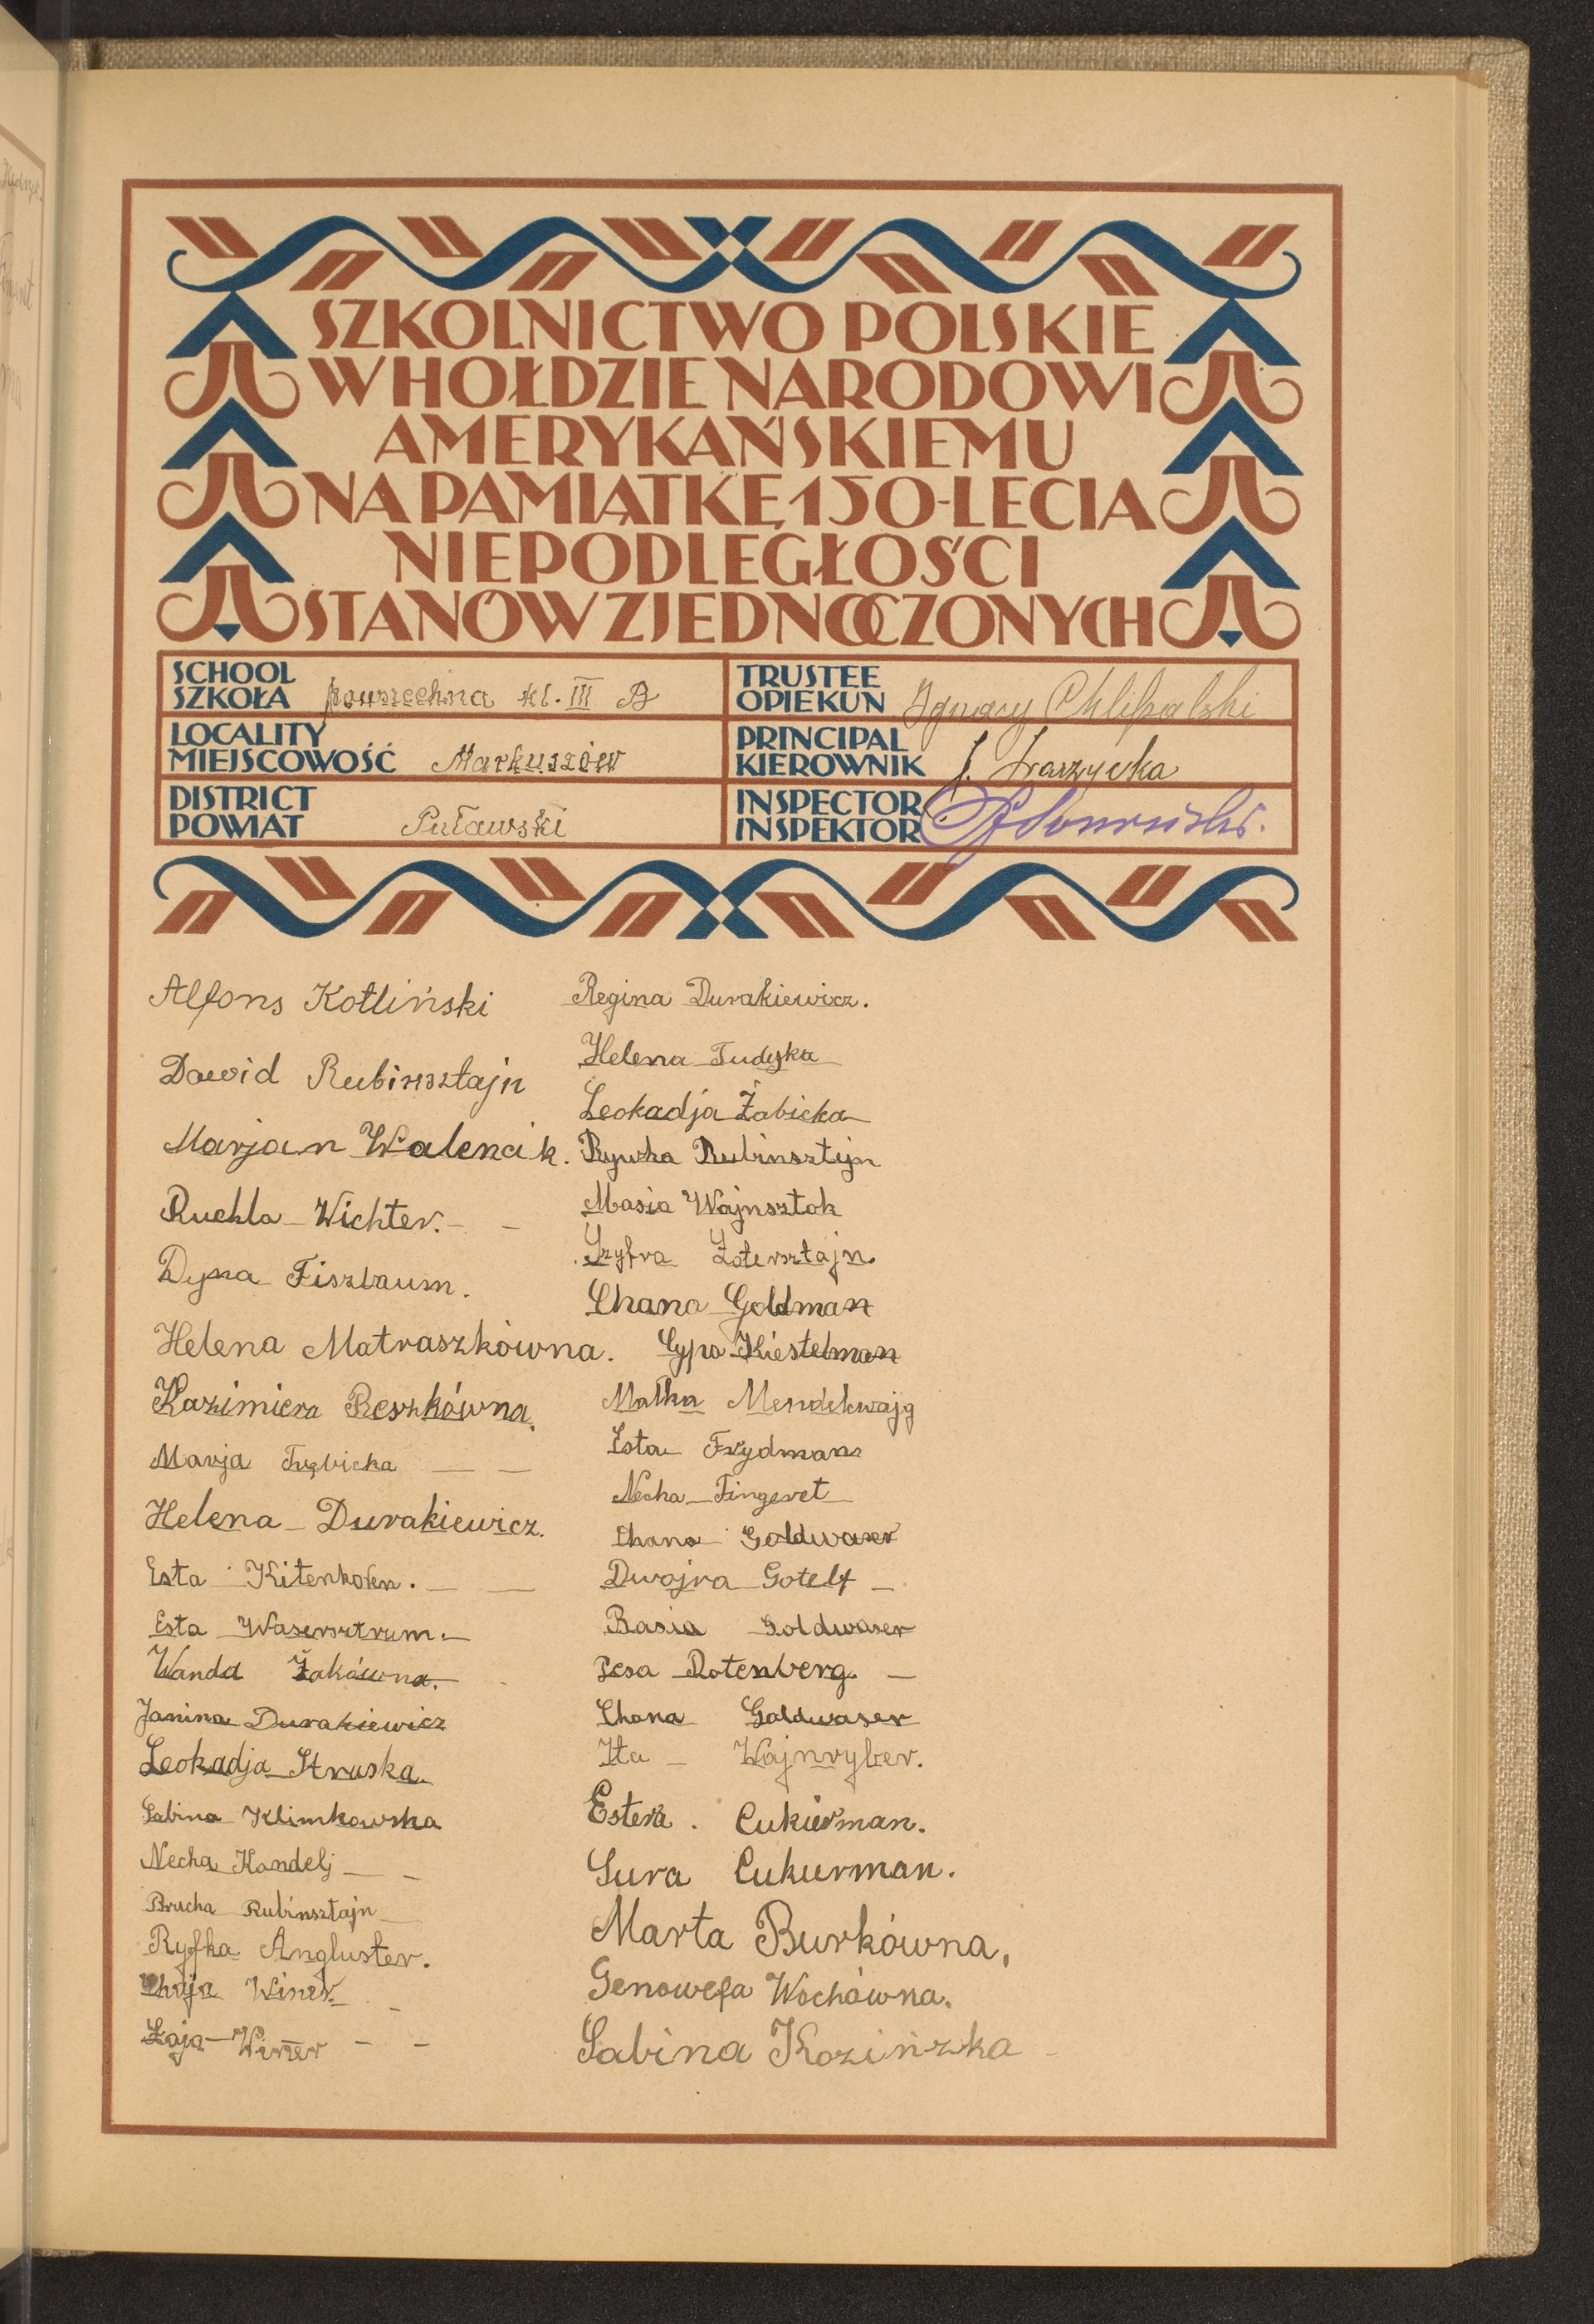 SZKOLNICTWO POLSKIE
W HOŁDZIE NARODOWI
AMERYKAŃSKIEMU
NA PAMIĄTKĘ 150-LECIA
NIEPODLEGŁOŚCI
STANÓW ZJEDNOCZONYCH
SCHOOL
SZKOŁA powszechna kl. III B
LOCALITY
MIEJSCOWOŚĆ Markuszów
DISTRICT
POWIAT Puławski
TRUSTEE
OPIEKUN Ignacy Chlipalski
PRINCIPAL
KIEROWNIK
INSPECTOR
INSPEKTOR
Alfons Kotliński
Dawid Rubinsztajn
Marjan Walencik.
Ruchla Wichter.
Dyna Fiszbaum.
Helena Matraszkówna.
Kazimiera Reszkówna.
Marja Trębicka
Helena Durakiewicz.
Esta
Esta Wasersztrum.
Wanda Żakówna.
Janina Durakiewicz
Leokadja Struska.
Sabina Klimkowska
Necha Handelj
Brucha Rubinsztajn
Ryfka Angluster.
Winer.
Łaja Winer
Regina Durakiewicz.
Helena Tudyka
Leokadja Żabicka
Rywka Rubinsztijn
Masia Wajnsztok
Szyfra
Chana Goldman
Cypa Kiestelman
Małka Mendelwajg
Esta Frydman
Necha Fingeret
Chana Goldwaser
Dwojra Gotelf
Basia Goldwaser
Pesa Rotenberg.
Chana Goldwaser
Ita Wajnryber.
Estera. Cukierman.
Sura Cukurman.
Marta Burkówna,
Genowefa Wochówna.
Sabina Kozińzka